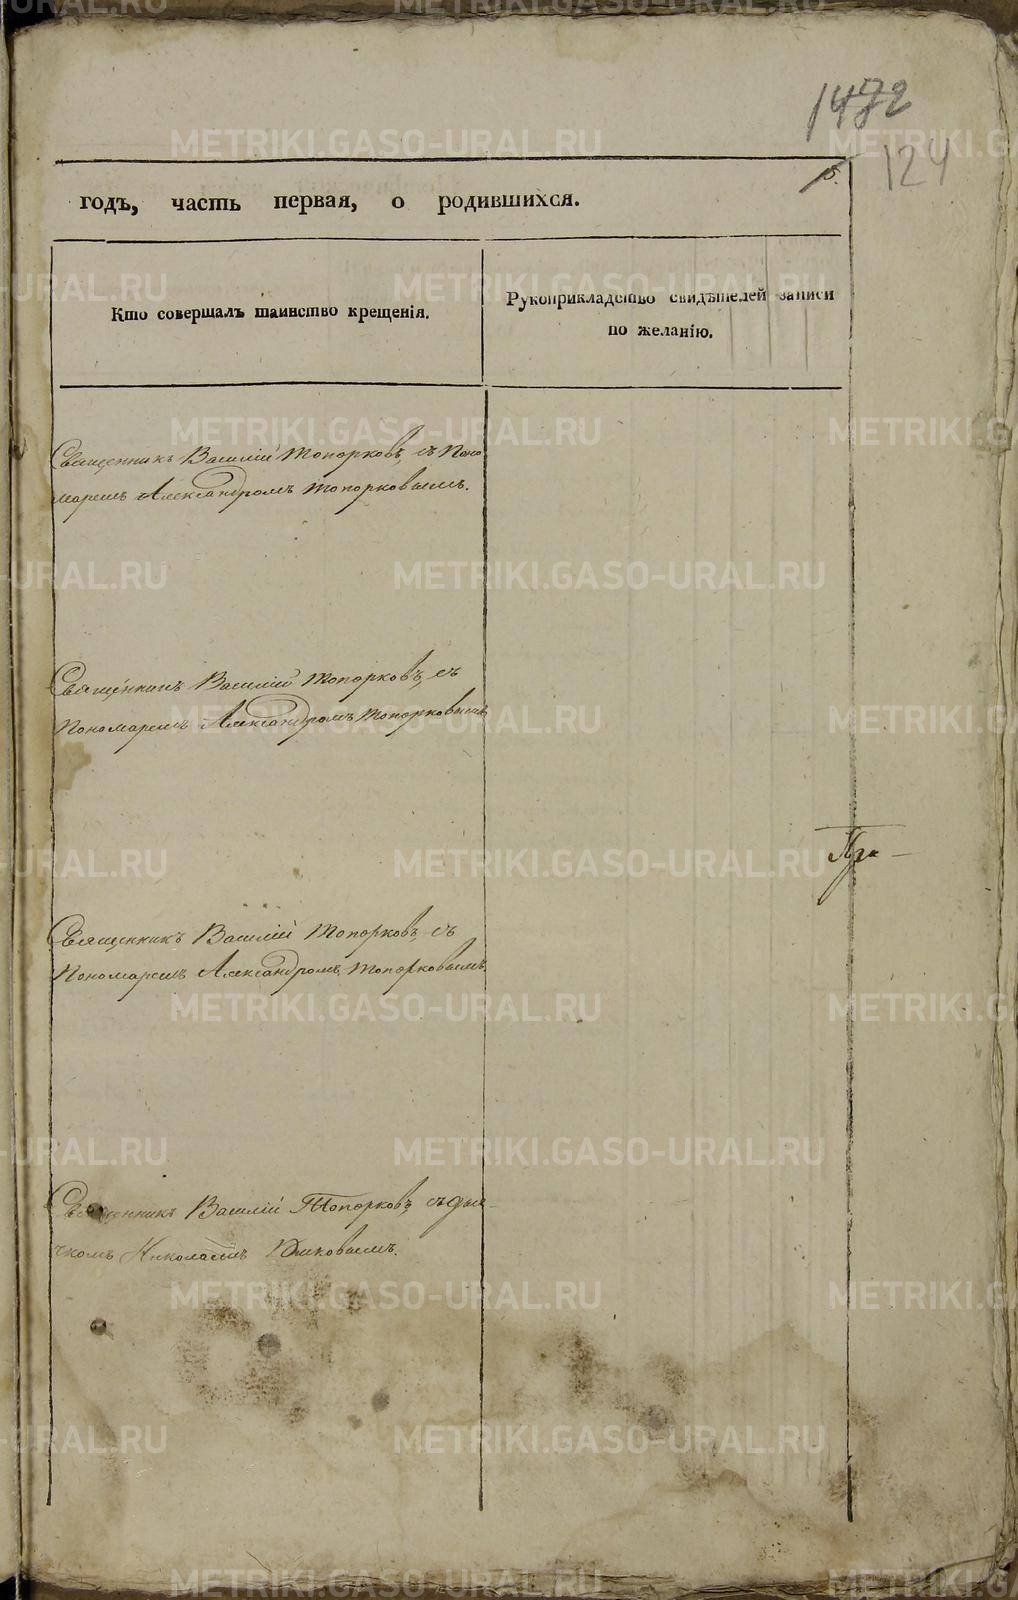 1472
124
5.
годъ, часть первая, о родившихся.
Кто совершалъ таинство крещенія.
Рукоприкладство свидѣтелей записи
по желанію.
Священникъ Василій Топорковъ, съ Поно
маремъ Александромъ Топорковымъ.
Священникъ Василій Топорковъ, съ
Пономаремъ Александромъ Топорковымъ
Пра
Священникъ Василій Топорковъ, съ
Пономаремъ Александромъ Топорковымъ.
Священникъ Василій Топорковъ, съ дья-
чкомъ Николаемъ
METRIKI.GASO-URAL.RU